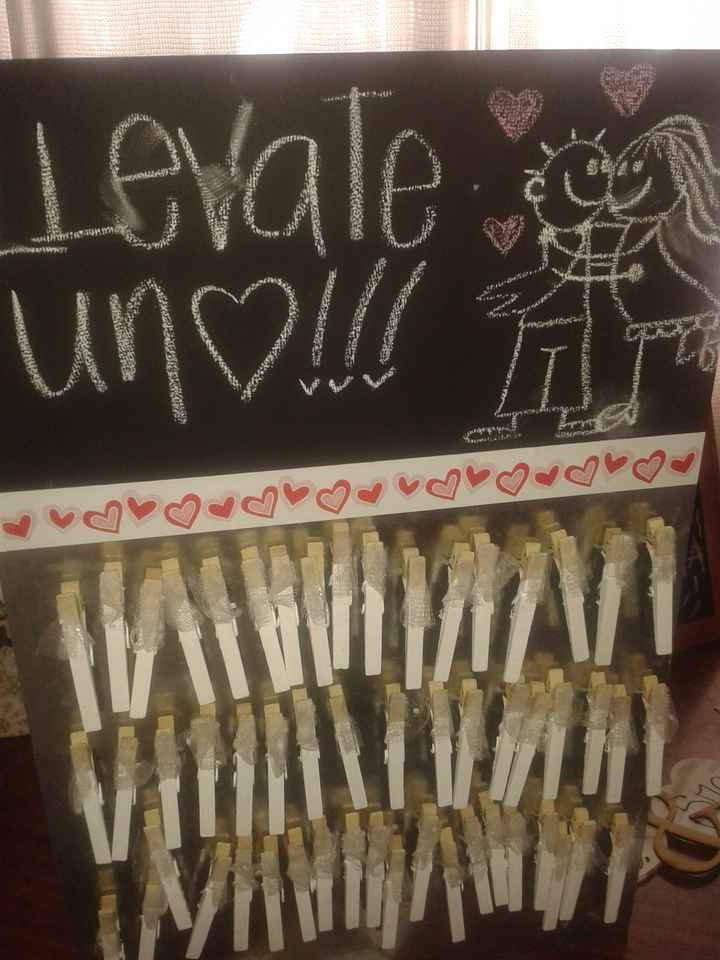 Levate
un♡!!!